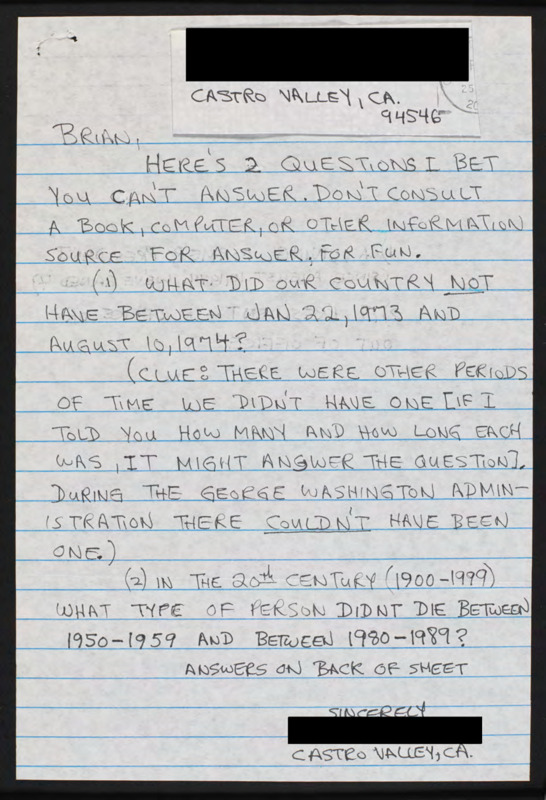 CASTRO VALLEY, CA.
94546
25
20
BRIAN,
HERE'S 2 QUESTIONS I BET
YOU CAN'T ANSWER. DON'T CONSULT
A BOOK, COMPUTER, OR OTHER INFORMATION
SOURCE FOR ANSWER, FOR FUN.
(1) WHAT DID OUR COUNTRY NOT
HAVE BETWEEN JAN 22, 1973 AND
AUGUST 10, 1974?
(CLUE: THERE WERE OTHER PERIODS
OF TIME WE DIDN'T HAVE ONE [IF I
TOLD YOU HOW MANY AND HOW LONG EACH
WAS, IT MIGHT ANGWER THE QUESTION].
DURING THE GEORGE WASHINGTON ADMIN-
ISTRATION THERE COULDN'T HAVE BEEN
ONE.)
(2) IN THE 20th CENTURY (1900-1999)
WHAT TYPE OF PERSON DIDNT DIE BETWEEN
1950-1959 AND BETWEEN 1980-1989?
ANSWERS ON BACK OF SHEET
SINCERELY
CASTRO VALLEY, CA.